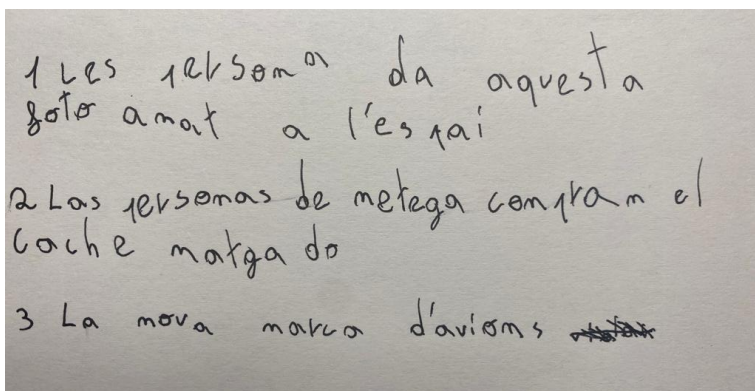 1 Les persona da aquesta
foto anat a l'espai
2 Las personas de metega compran el
cache matgado
3 La nova marca d'avions